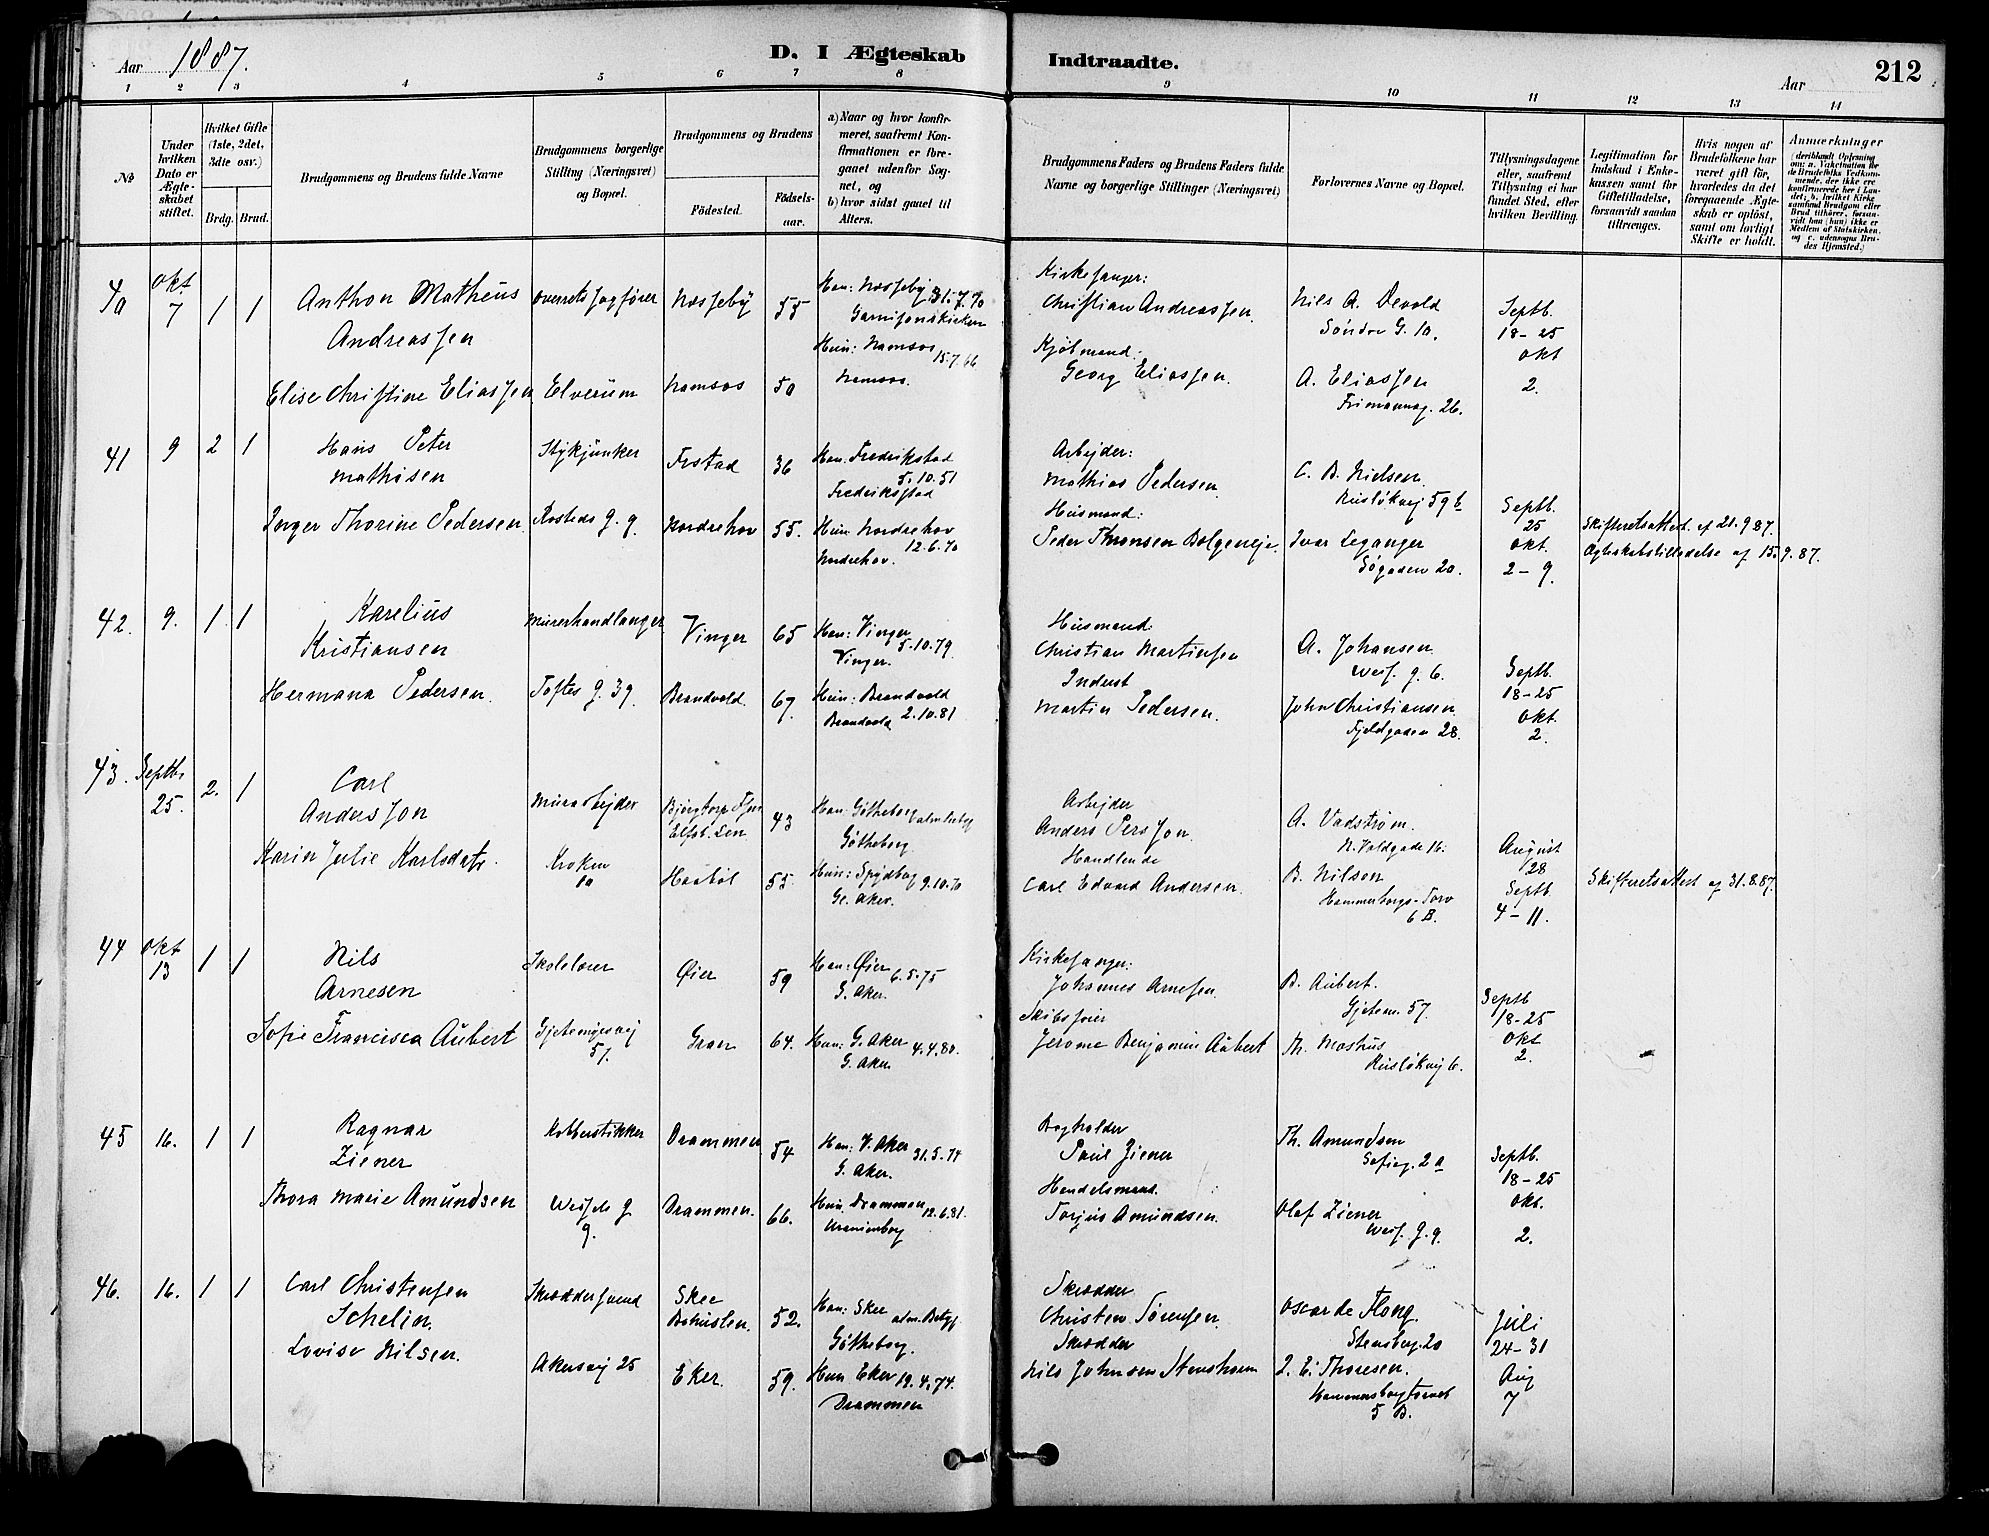 Aar 1887.
D. I Ægteskab Indtraadte.
Aar
212
1 2 3 4 5 6 7 8 9 10 11 12 13 14
No
Under hvilken Dato er Ægteskabet stiftet.
Hvilket Gifte (1ste, 2det, 3die osv.)
Brdg. Brud.
Brudgommens og Brudens fulde Navne
Brudgommens borgerlige Stilling (Næringsvei) og Bopæl.
Brudgommens og Brudens
Fødested.
Fødselsaar.
a) Naar og hvor konfirmeret, saafremt Konfirmationen er foregaaet udenfor Sognet, og
b) hvor sidst gaaet til Alters.
Brudgommens Faders og Brudens Faders fulde Navne og borgerlige Stillinger (Næringsvei)
Forlovernes Navne og Bopæl.
Tillysningsdagene eller, saafremt Tillysning ei har fundet Sted, efter hvilken Bevilling.
Legitimation for Indskud i Enkekassen samt for Giftetilladelse, forsaavidt saadan tiltrænges.
Hvis nogen af Brudefolkene har været gift før, hvorledes da det foregaaende Ægteskab er opløst, samt om lovligt Skifte er holdt.
Anmærkninger
(deriblandt Oplysning om: a. Vakcination for de Brudefolks Vedkommende, der ikke ere konfirmerede her i Landet; b. hvilket Kirkesamfund Brudgom eller Brud tilhører, forsaavidt han (hun) ikke er Medlem af Statskirken, og c. udensogns Brudes Hjemsted.)
40 Okt 7 1 1
Anthon Matheus Andreassen
Overretssagfører
Næsseby 55
Han: Næsseby 31.7.70
Garnisonskirken
Kirkesanger:
Christian Andreassen.
Nils A. Devold
Søndre G. 10.
Septb. 18-25
Okt 2.
Elise Christine Eliassen
Elverum
Namsos 50
Hun: Namsos 15.7.66
Namsos.
Kjøbmand:
Georg Eliassen.
A. Eliassen
Frimannsg. 26.
41 9 2 1
Hans Peter Mathisen
Stykjunker
Frstad 36
Han: Fredrikstad 5.10.51
Fredriksstad
Arbejder:
Mathias Pedersen
C. B. Nielsen.
Ruseløkvej 59 b
Septb. 25
Okt. 2-9.
Inger Thorine Pedersen
Rosteds g. 9.
Nordrehov 55.
Hun Nordrehov 12.6.70
Nordrehov.
Husmand:
Peder Thronsen Bolgeneje.
Ivar Leganger
Søgaden 20.
Skifteretsattest. af 21.9 87.
Ægteskabstilladelse af 15.9.87.
42. 9. 1. 1
Karelius Kristiansen
Murerhandlanger
Vinger 65
Han: Vinger 5.10.79
Vinger.
Husmand:
Christian Martinsen
A. Johansen
Wess. g. 6.
Septb. 18-25
Okt. 2.
Hermana Pedersen.
Toftes g. 39.
Brandvold. 67.
Hun: Brandvold 2.10.81
Brandvold
Inderst
Martin Pedersen.
John Christiansen
Fjeldgaden 28.
43. Septbr 25. 2. 1
Carl Andersson
Murarbejder
43
Han: Gøtheborg
Gøtheborg.
Arbejder
Anders Persson
A. Vadstrøm.
N. Voldgade 16.
August 28
Septb. 4-11.
Karin Julie Karlsdatr.
Kroken 10
Haabøl 55.
Hun: Spydbog 9.10.70
Gl. Aker.
Handlende
Carl Edvard Andersen.
B. Nilsen
Hammersborgs-Torv 6 B.
Skifteretsattest af 31.8.87.
44 Okt 13 1 1
Nils Arnesen
Skolelærer
Øier 59
Han: Øier 6.5.75
G. Aker.
Kirkesanger:
Johannes Arnesen.
B. Aubert.
Gjetem. 57.
Septb 18-25
Okt 2.
Sofie Francisca Aubert
Gjetemyrsvej 57.
Gran 64.
Hun: G. Aker 4.4.80.
G. Aker.
Skibsfører
Jerome Benjamin Aubert
Th. Mæhus
Ruseløkvej 6.
45 16. 1 1
Ragnar Ziener
Kobberstikker
Drammen 54
Han: V. Aker 31.5.74
G. Aker.
Bogholder
Paul Ziener
Th. Amundsen
Sofieg. 2 a
Septb. 18-25
Okt. 2.
Thora Marie Amundsen
Wessels g 9.
Drammen. 66.
Hun Drammen 12.6.81.
Uranienborg
Handelsmand.
Torjus Amundsen.
Olaf Ziener
Wess. g. 9.
46. 16. 1 1
Carl Christensen Schelin.
Skræddersvend
Skee Bohuslen. 52.
Han: Skee
Gøtheborg.
Skrædder
Christen Sørensen.
Oscar de Flong.
Stensberg. 20
Juli 24-31
Aug 7
Lovise Nilsen.
Akersvej 25
Eker. 59.
Hun Eker 19.4.74.
Drammen
Skrædder
Nils Johnsen Stensholm
L. E. Thoresen.
Hammersborgtorvet 5 B.